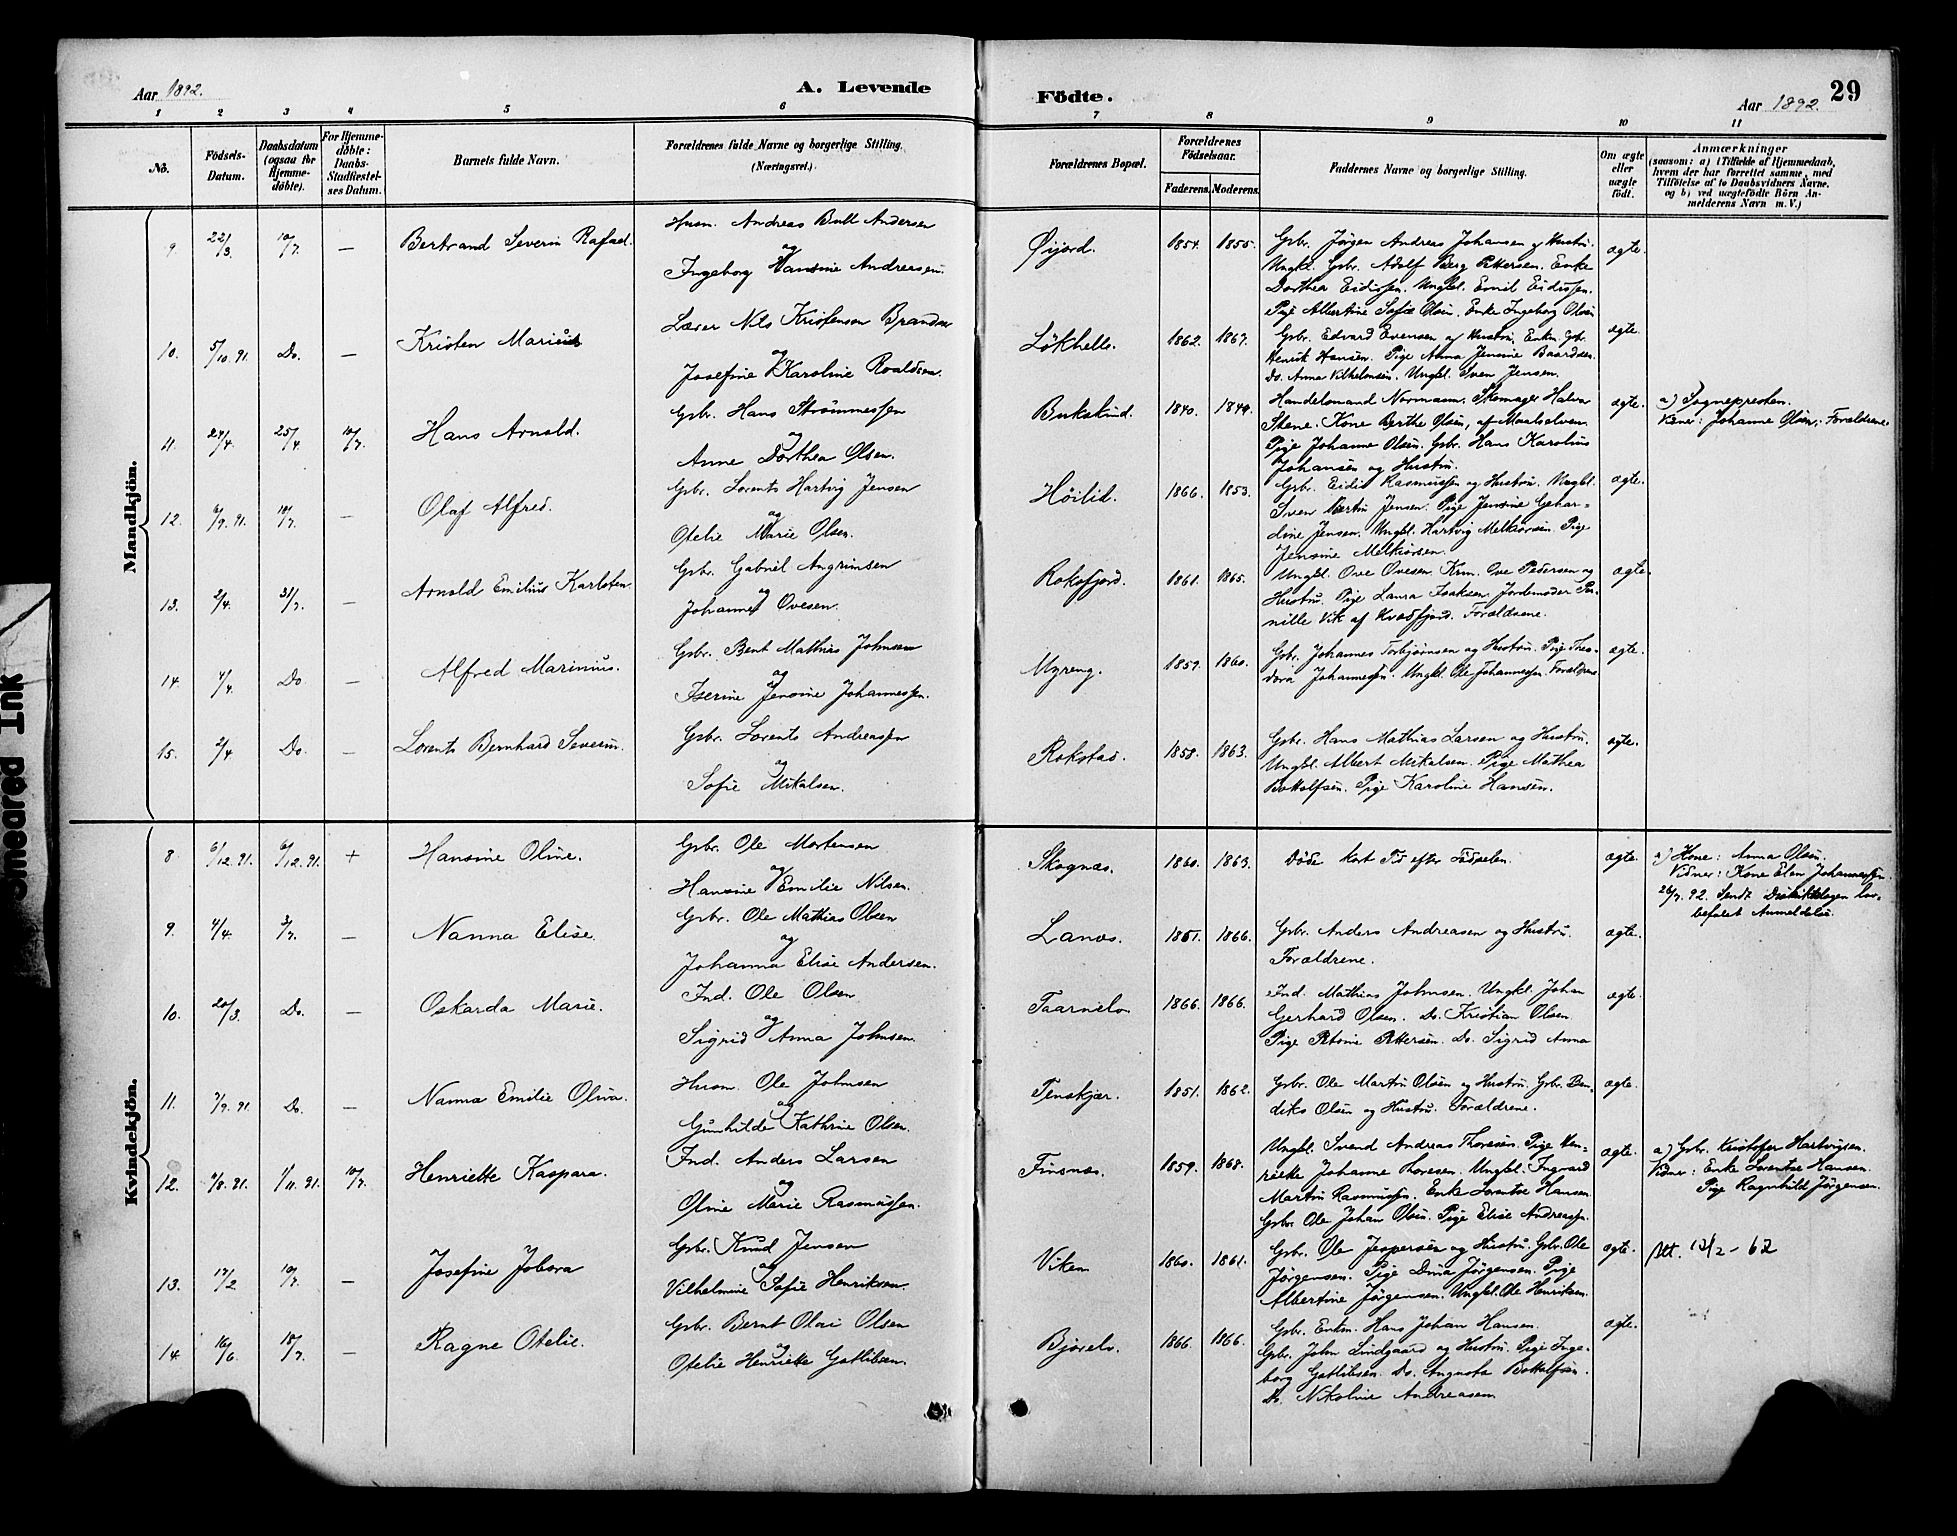 Aar 1892. A. Levende Födte. Aar 1892. 29
1 2 3 4 5 6 7 8 9 10 11
No. Födsels-Datum. Daabsdatum (ogsaa for Hjemme-døbte). For Hjemme-døbte: Daabs-Stadfæstel-ses Datum. Barnets fulde Navn. Forældrenes fulde Navne og borgerlige Stilling. (Næringsvei.) Forældrenes Bopæl. Forældrenes Födselsaar. Faderens. Moderens. Faddernes Navne og borgerlige Stilling. Om ægte eller uægte födt. Anmærkninger (saasom: a) i Tilfælde af Hjemmedaab, hvem der har forrettet samme, med Tilföielse af to Daabsvidners Navne, og b) ved uægtefödte Börn An-melderens Navn m. V.)
Mandkjön.
9. 22/3 10/7 — Bertrand Severin Rafael. Husm. Andreas Bull Andersen
og
Ingeborg Hansine Andreasen.
Øijord. 1854. 1855. Gbr. Jørgen Andreas Johansen og Hustru.
Ungkl. Gbr. Adolf Berg Pettersen. Enke
Dorthea Eidissen. Ungkl. Emil Eidissen.
Pige Albertine Sofie Olsen. Enke Ingeborg Olsen
ægte.
10. 5/10.91. Do. — Kristen Marius Lærer Nils Kristensen
og
Josefine Karoline Roaldsen.
Løkhelle. 1862. 1867. Gbr. Edvard Evensen og Hustru. Enkm. Gbr.
Henrik Hansen. Pige Anna Jensine Baardsen.
Do. Anna Vilhelmsen. Ungkl. Sven Jensen.
ægte.
11. 24/4. 25/4 10/7. Hans Arnold. Gbr. Hans Strømmesen
og
Anne Dorthea Olsen.
Bukskind. 1840. 1849. Handelsmand Normann. Skomager Halvor
Stene. Kone Berthe Olsen, af Maalselven.
Pige Johanne Olsen. Gbr. Hans Karolius
Johansen og Hustru.
ægte. a) Sognepresten.
Johanne Olsen, Forældrene.
12. 6/9.91. 10/7. — Olaf Alfred. Gbr. Lorents Hartvig Jensen
og
Otelie Marie Olsen.
Høilid. 1866. 1853. Gbr. Eidis Rasmussen og Hustru. Ungkl.
Sven Martin Jensen. Pige Jensine Gehar-
dine Jensen. Ungkl. Hartvig Melkiorsen. Pige
Jensine Melkiorsen.
ægte.
13. 2/4. 31/7. — Arnold Emilius Karlsten. Gbr. Gabriel Angrimsen
og
Johanne Ovesen.
Roksfjord. 1861. 1865. Ungkl. Ove Ovesen. Krm. Ove Pedersen og
Hustru. Pige Laura Isaksen. Jordemoder Per-
nille Vik af Kvædfjord. Forældrene.
ægte.
14. 4/4. Do. — Alfred Marinius. Gbr. Bent Mathias Johnsen
og
Iserine Jensine Johannessen.
Myreng. 1859. 1860. Gbr. Johannes Torbjørnsen og Hustru. Pige Theo-
dora Johannessen. Ungkl. Ole Johannessen. Forældrene
ægte.
15. 2/4 Do. — Lorents Bernhard Severin. Gbr. Lorents Andreassen
og
Sofie Mikalsen.
Rokstad. 1858. 1863. Gbr. Hans Mathias Larsen og Hustru.
Ungkl. Albert Mikalsen. Pige Mathea
Bottolfsen. Pige Karoline Hansen.
ægte.
Kvindekjön.
8. 6/12.91. 6/12.91. + Hansine Oline. Gbr. Ole Mortensen
og
Hansine Emilie Nilsen.
Skognæs. 1860. 1863. Døde kort Tid efter Fødselen. ægte. a) Kone: Anna Olsen.
Vidner: Kone Elen Johannessen.
26/7.92. Sendt Distriktslægen lov-
befalet Anmeldelse.
9. 4/4. 3/7. — Nanna Elise. Gbr. Ole Mathias Olsen
og
Johanna Elise Andersen.
Lanæs. 1861. 1866. Gbr. Anders Andreasen og Hustru.
Forældrene.
ægte.
10. 20/3 Do. — Oskarda Marie. Ind. Ole Olsen
og
Sigrid Anna Johnsen.
Taarnelv. 1866. 1866. Ind. Mathias Johnsen. Ungkl. Johan
Gerhard Olsen. Do. Kristian Olsen.
Pige Petrine Pettersen. Do. Sigrid Anna
ægte.
11. 7/9.91. Do. — Nanna Emilie Oliva. Husm. Ole Johnsen
og
Gunhilde Kathrine Olsen.
Tenskjær. 1851. 1862. Gbr. Ole Martin Olsen og Hustru. Gbr. Ben-
diks Olsen og Hustru. Forældrene.
ægte.
12. 4/8.91. 1/11.91. 10/7. Henriette Kaspara. Ind. Anders Larsen
og
Oline Marie Rasmussen.
Finsnæs. 1859. 1868. Ungkl. Svend Andreas Thoresen. Pige Hen-
rikke Johanne Thoresen. Ungkl. Ingvard
Martin Rasmussen. Enke Lorentse Hansen
Gbr. Ole Johan Olsen. Pige Elise Andreassen.
ægte. a) Gbr. Kristofer Hartvigsen.
Vidner: Enke Lorentse Hansen.
Pige Ragnhilde Jørgensen.
13. 17/2 10/7. — Josefine Jobora Gbr. Knud Jensen
og
Vilhelmine Sofie Henriksen.
Viken 1860. 1861. Gbr. Ole Jespersen og Hustru. Gbr. Ole
Jørgensen. Pige Dina Jørgensen. Pige
Albertine Jørgensen. Ungkl. Ole Henriksen.
ægte. Att. 12/2-62
14 16/6. 10/7. — Ragne Otelie. Gbr. Bernt Olai Olsen
og
Otelie Henrikke Gottlibsen.
Bjorelv. 1866. 1866. Gbr. Enkm. Hans Johan Hansen.
Gbr. John Lindgaard og Hustru. Pige Inge-
borg Gottlibsen. Do. Augusta Bottolfsen.
Do. Nikoline Andreasen
ægte.
Smeared Ink